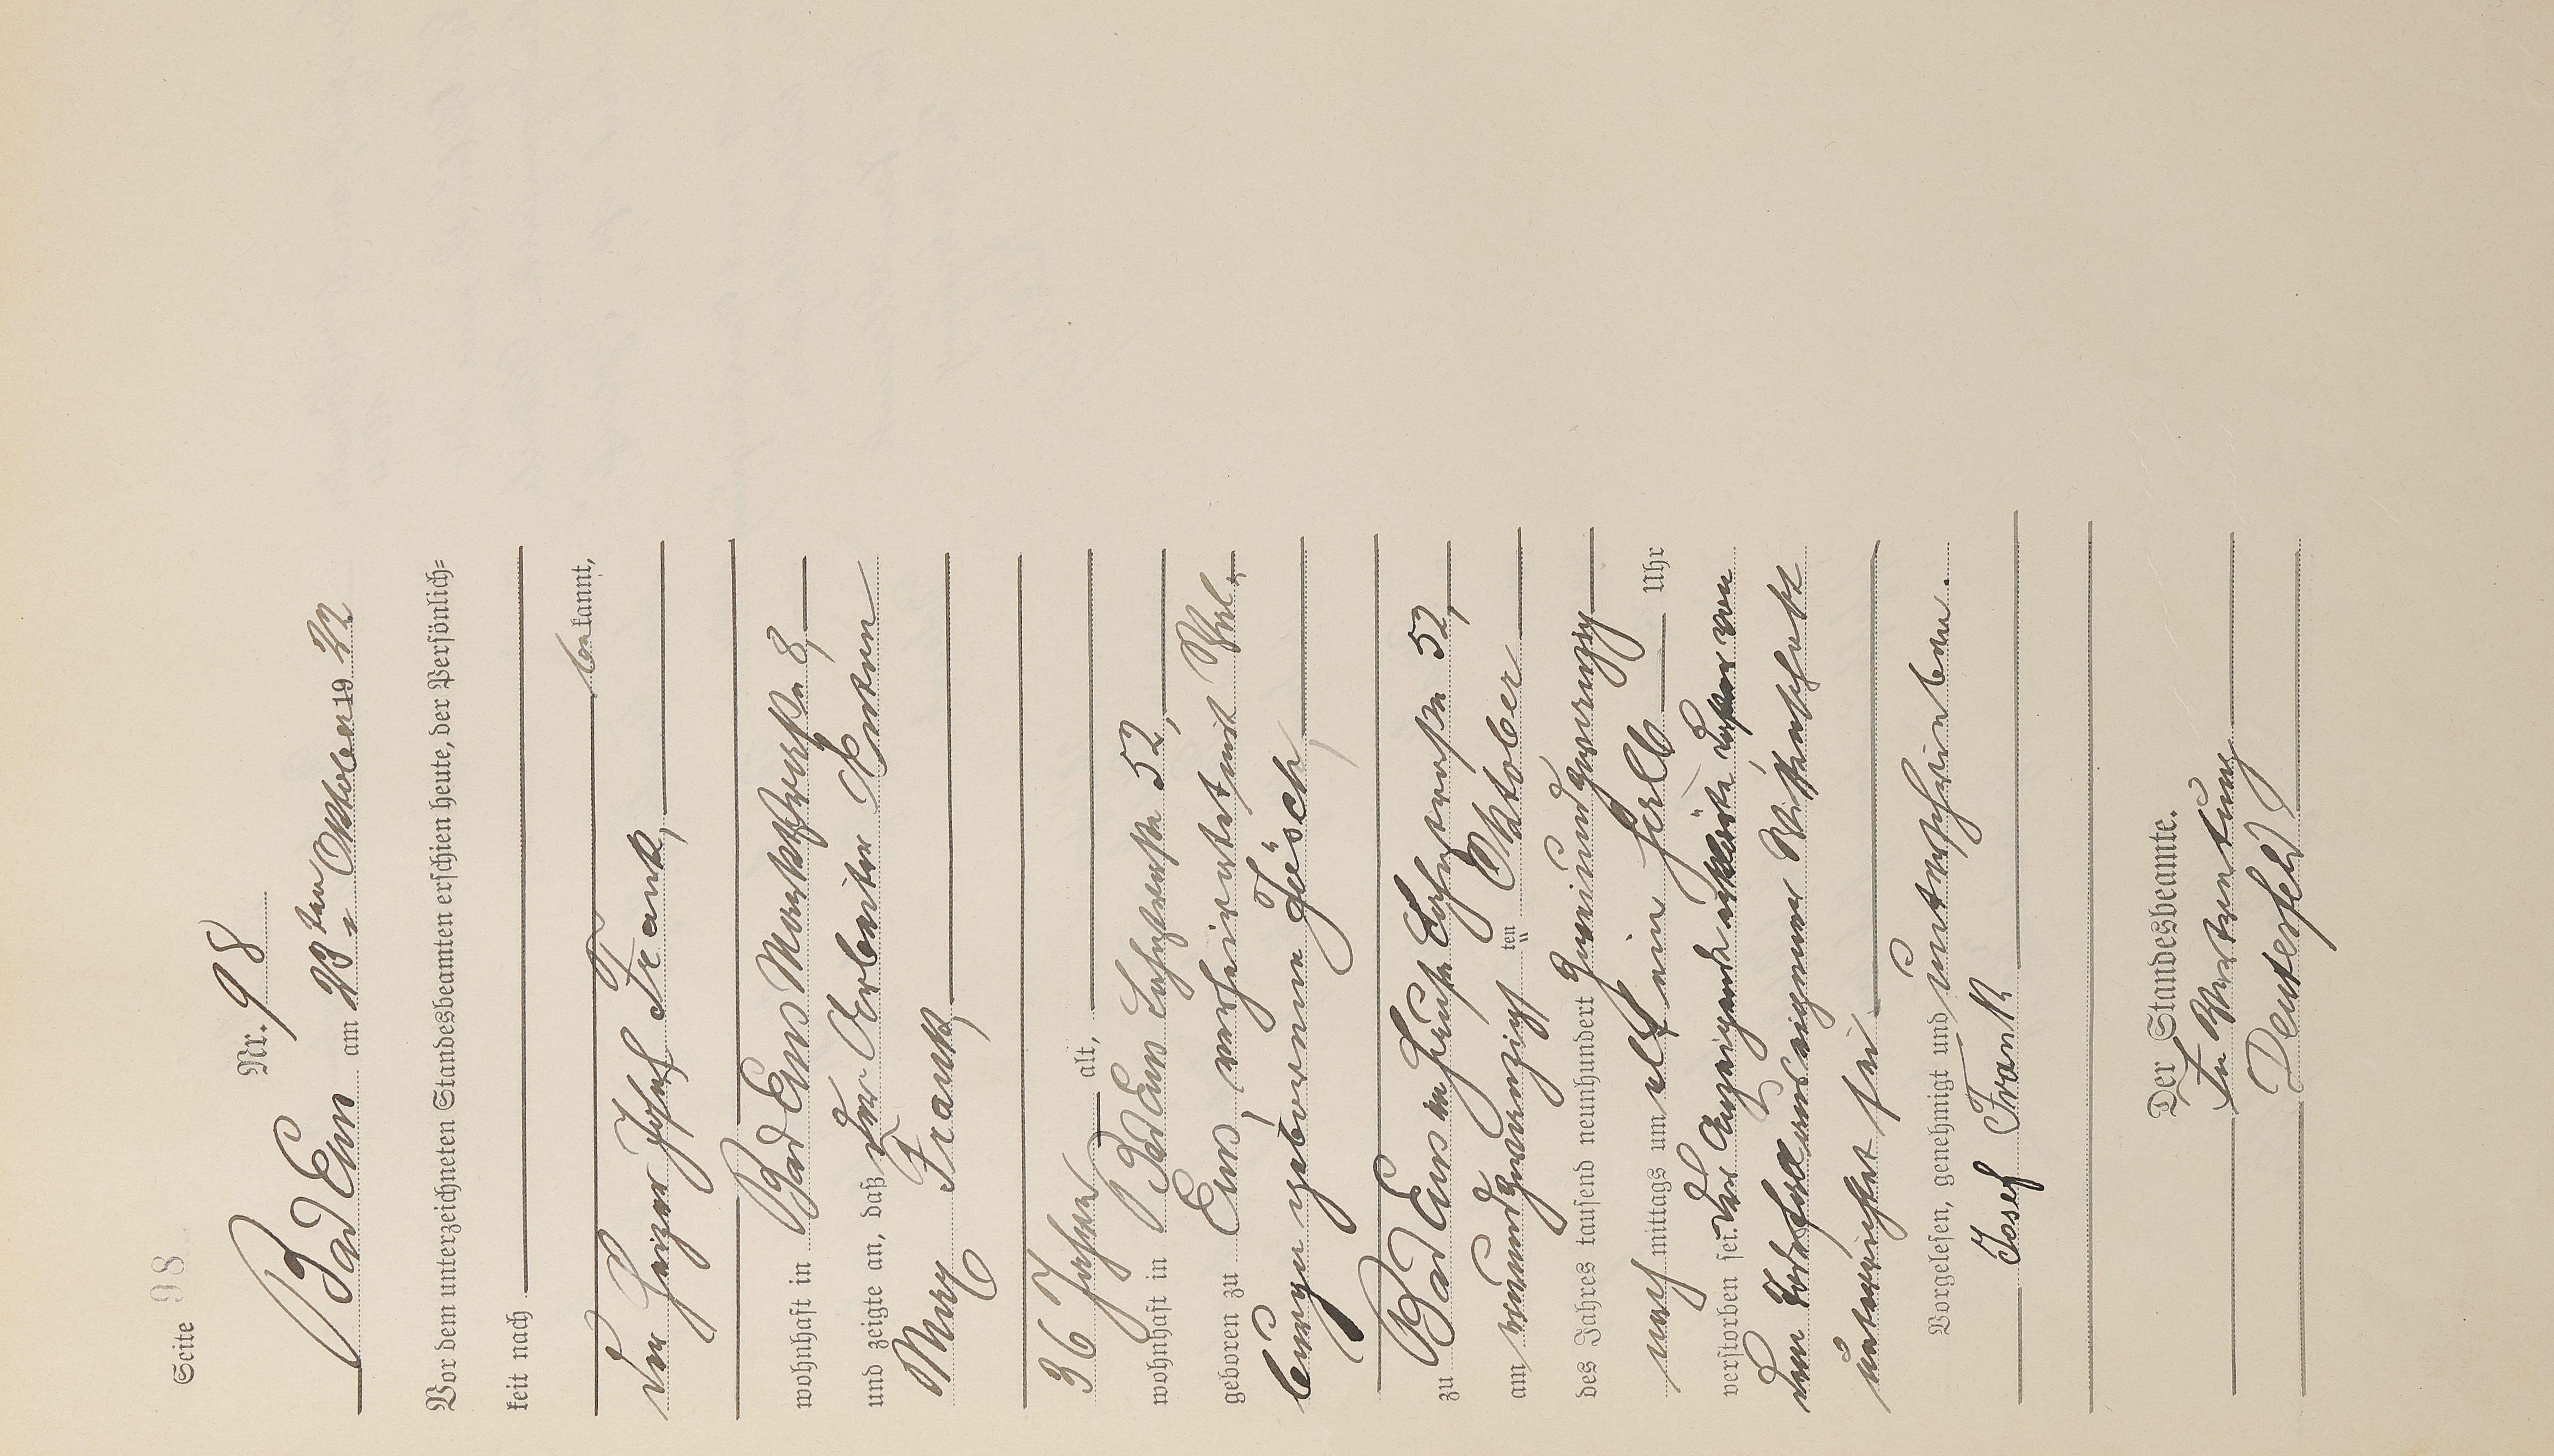 Seite 98
Nr. 98
Bad Ems am 23ten Oktober 1922
Vor dem unterzeichneten Standesbeamten erschien heute, der Persönlich=
keit nach
bekannt,
der Heizer Josef Frank,
wohnhaft in Bad Ems Marktstraße 8,
und zeigte an, daß der Arbeiter Anton
Frank,
36 Jahre alt,
wohnhaft in Bad Ems Lahnstraße 52,
geboren zu Ems, verheiratet mit
geborene Jüsch,
zu Bad Ems im Hause Lahnstraße 52,
am einundzwanzigsten Oktober
des Jahres tausend neunhundert zweiundzwanzig
nach mittags um elf ein halb Uhr
verstorben sei. Der Anzeigende erklärte daß er von
dem Todesfall aus eigener Wissenschaft
unterrichtet sei.
Vorgelesen, genehmigt und unterschrieben.
Josef Frank
Der Standesbeamte.
In Vertretung